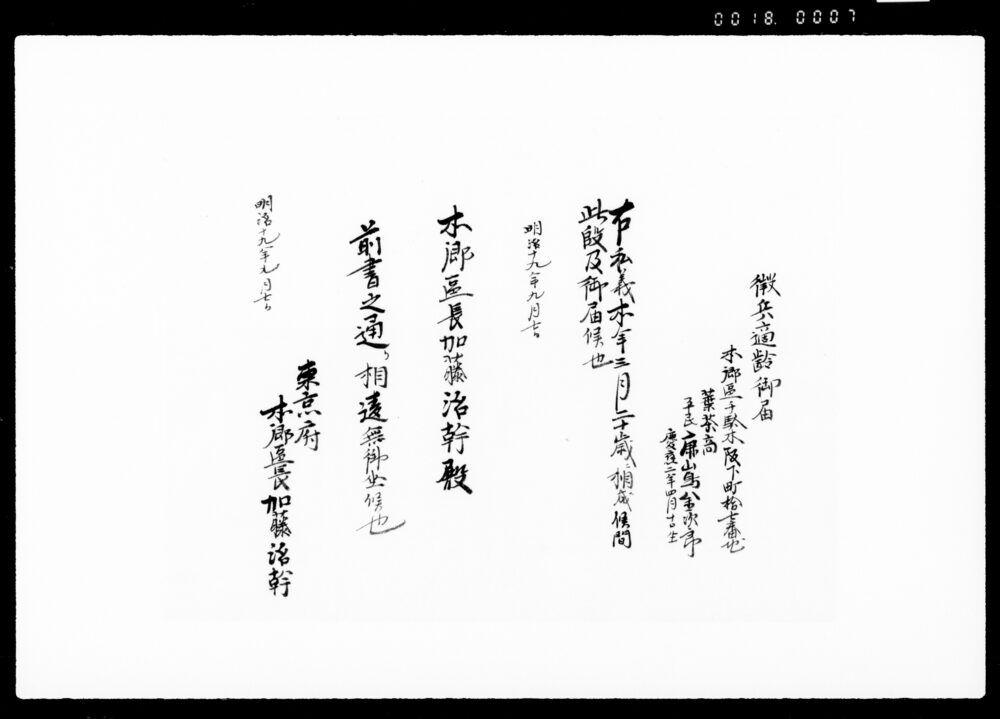 0018. 0007
徴兵適齢御届
本郷區千駄木阪下町拾七番地
葉茶商
平民 鹿山金次郎
慶應二年四月十日生
右私義本年三月二十歳ニ相成候間
此段及御届候也
明治十九年九月七日
本郷區長加藤治幹殿
前書之通り相違無御坐候也
明治十九年九月七日
東京府
本郷區長加藤治幹